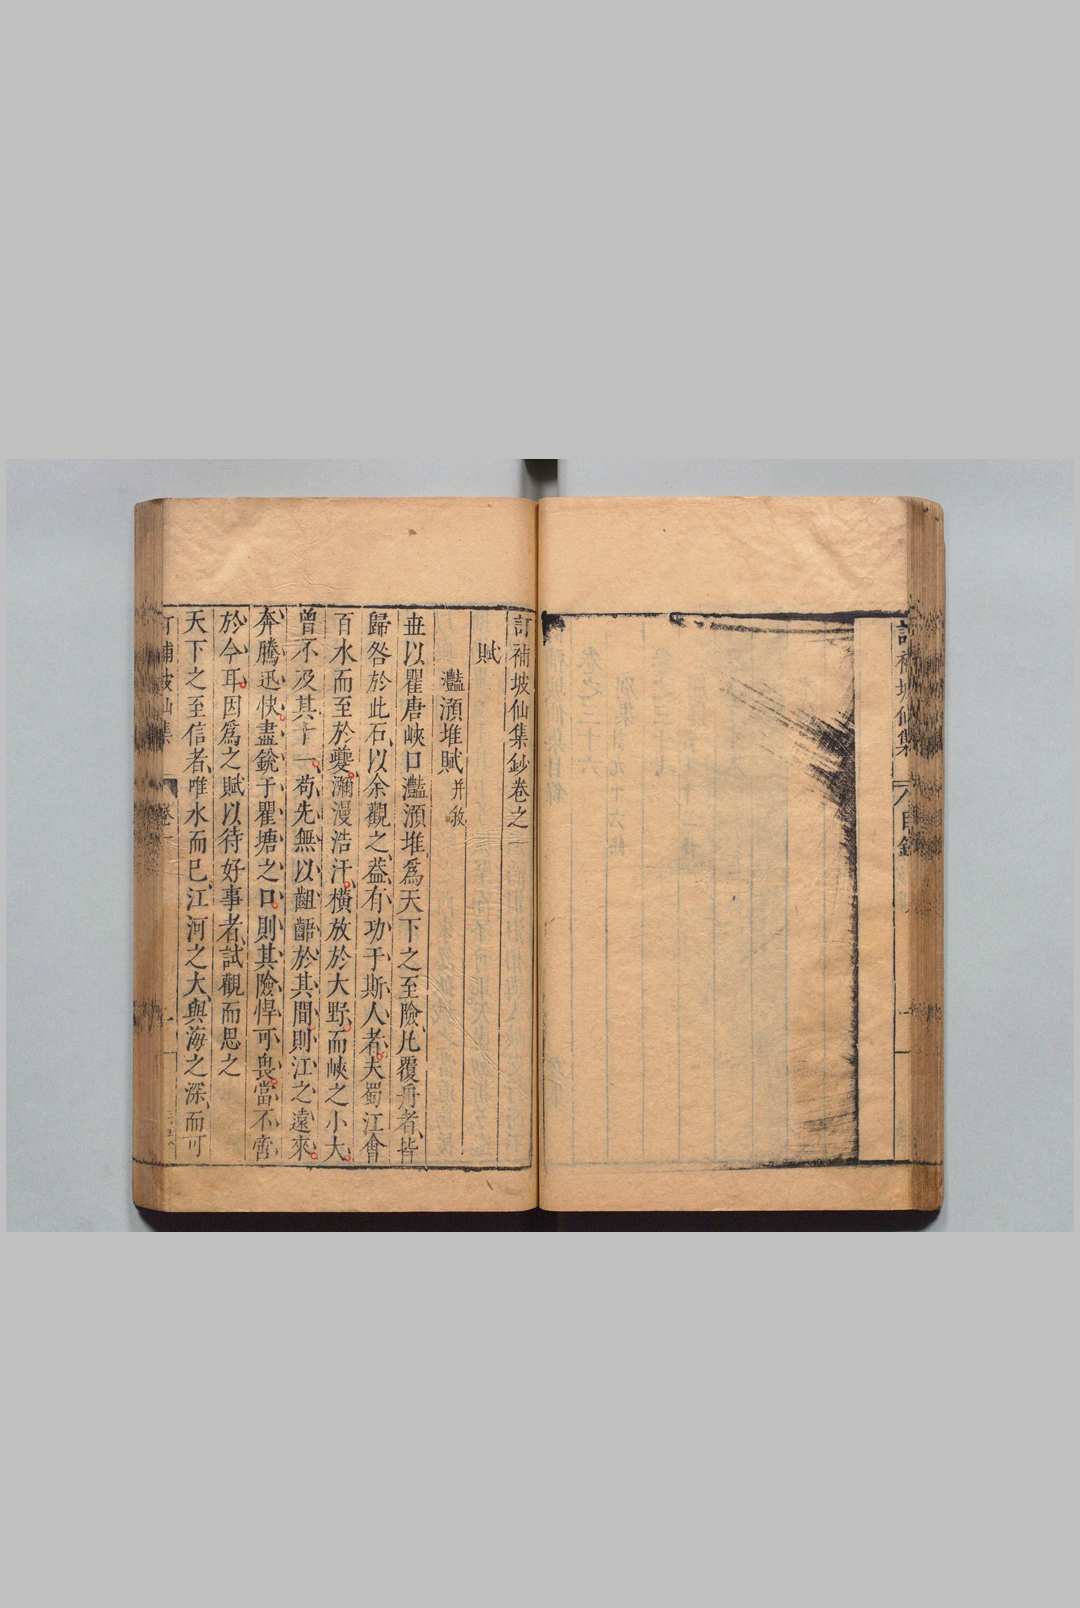 訂補坡仙集 目錄
訂補坡仙集鈔卷之一
賦
灩澦堆賦 并敘
世以瞿唐峽口灩澦堆爲天下之至險凡覆舟者皆
歸咎於此石以余觀之葢有功于斯人者夫蜀江會
百水而至於夔瀰漫浩汗橫放於大野而峽之小大
曾不及其十一苟先無以齟齬於其間則江之遠來
奔騰迅快盡銳于瞿塘之口則其險悍可畏當不啻
於今耳因爲之賦以待好事者試觀而思之
天下之至信者唯水而已江河之大與海之深而可
訂補坡仙集 卷一